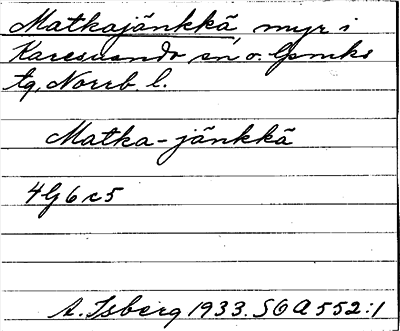 Matkajänkkä, myr i
Karesuando sn o. Gamla
tg, Norrb. l.
Matka-jänkkä
4G6c5
A. Isberg 1933. SOA 552:1